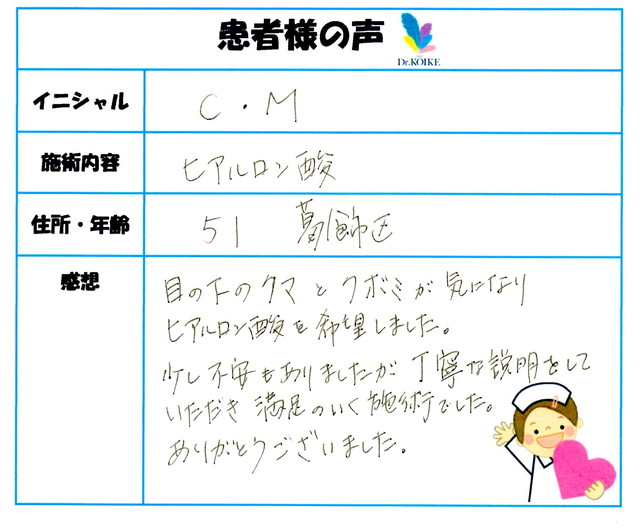 患者様の声
Dr.KOIKE
イニシャル
C・M
施術内容
ヒアルロン酸
住所・年齢
51 葛飾区
感想
目の下のクマとクボミが気になり
ヒアルロン酸を希望しました。
少し不安もありましたが丁寧な説明をして
いただき満足のいく施術でした。
ありがとうございました。